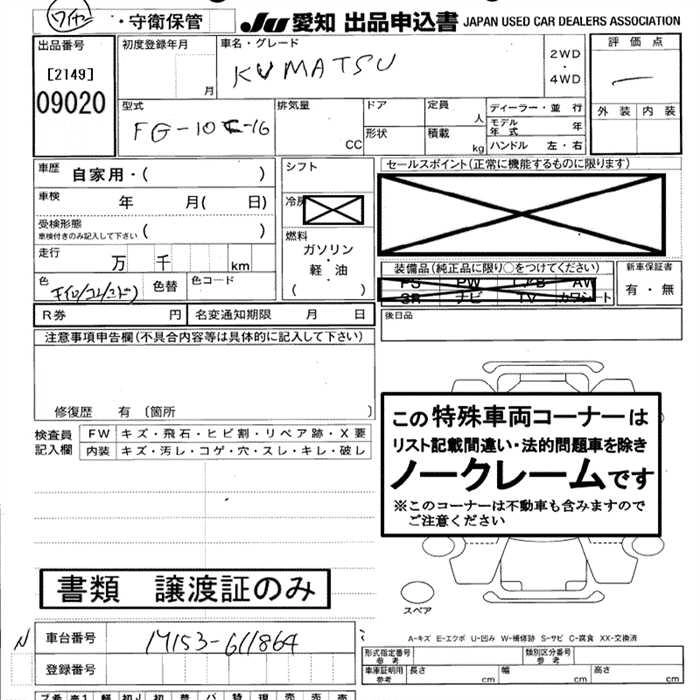 ・守衛保管
JU 愛知 出品申込書 JAPAN USED CAR DEALERS ASSOCIATION
出品番号
[2149]
09020
初度登録年月
月
車名・グレード
KUMATSU
2WD
・
4WD
評価点
外装 内装
型式
FG-10C-16
排気量
CC
ドア
形状
定員
人
積載
kg
ディーラー・並行
モデル年式 年
ハンドル 左・右
車歴 自家用・( )
車検 年 月( 日)
受検形態
車検付きのみ記入して下さい ( )
走行 万 千 km
色
色替
色コード
シフト
燃料
ガソリン
・
軽・油
( )
セールスポイント(正常に機能するものに限ります)
装備品(純正品に限り○をつけてください)
PS PW エアB AW
SR ナビ TV カワシート
新車保証書
有・無
R券 円 名変通知期限 月 日
後日品
注意事項申告欄(不具合内容等は具体的に記入して下さい)
修復歴 有 〔箇所 〕
検査員
記入欄
FW キズ・飛石・ヒビ割・リペア跡・X要
内装 キズ・汚レ・コゲ・穴・スレ・キレ・破レ
この特殊車両コーナーは
リスト記載間違い・法的問題車を除き
ノークレームです
※このコーナーは不動車も含みますので
ご注意ください
書類 譲渡証のみ
スペア
N
車台番号 M153-611864
登録番号
A-キズ E-エクボ U-凹み W-補修跡 S-サビ C-腐食 XX-交換済
形式指定番号
参考
類別区分番号
参考
車庫証明用
参考
長さ cm 幅 cm 高さ cm